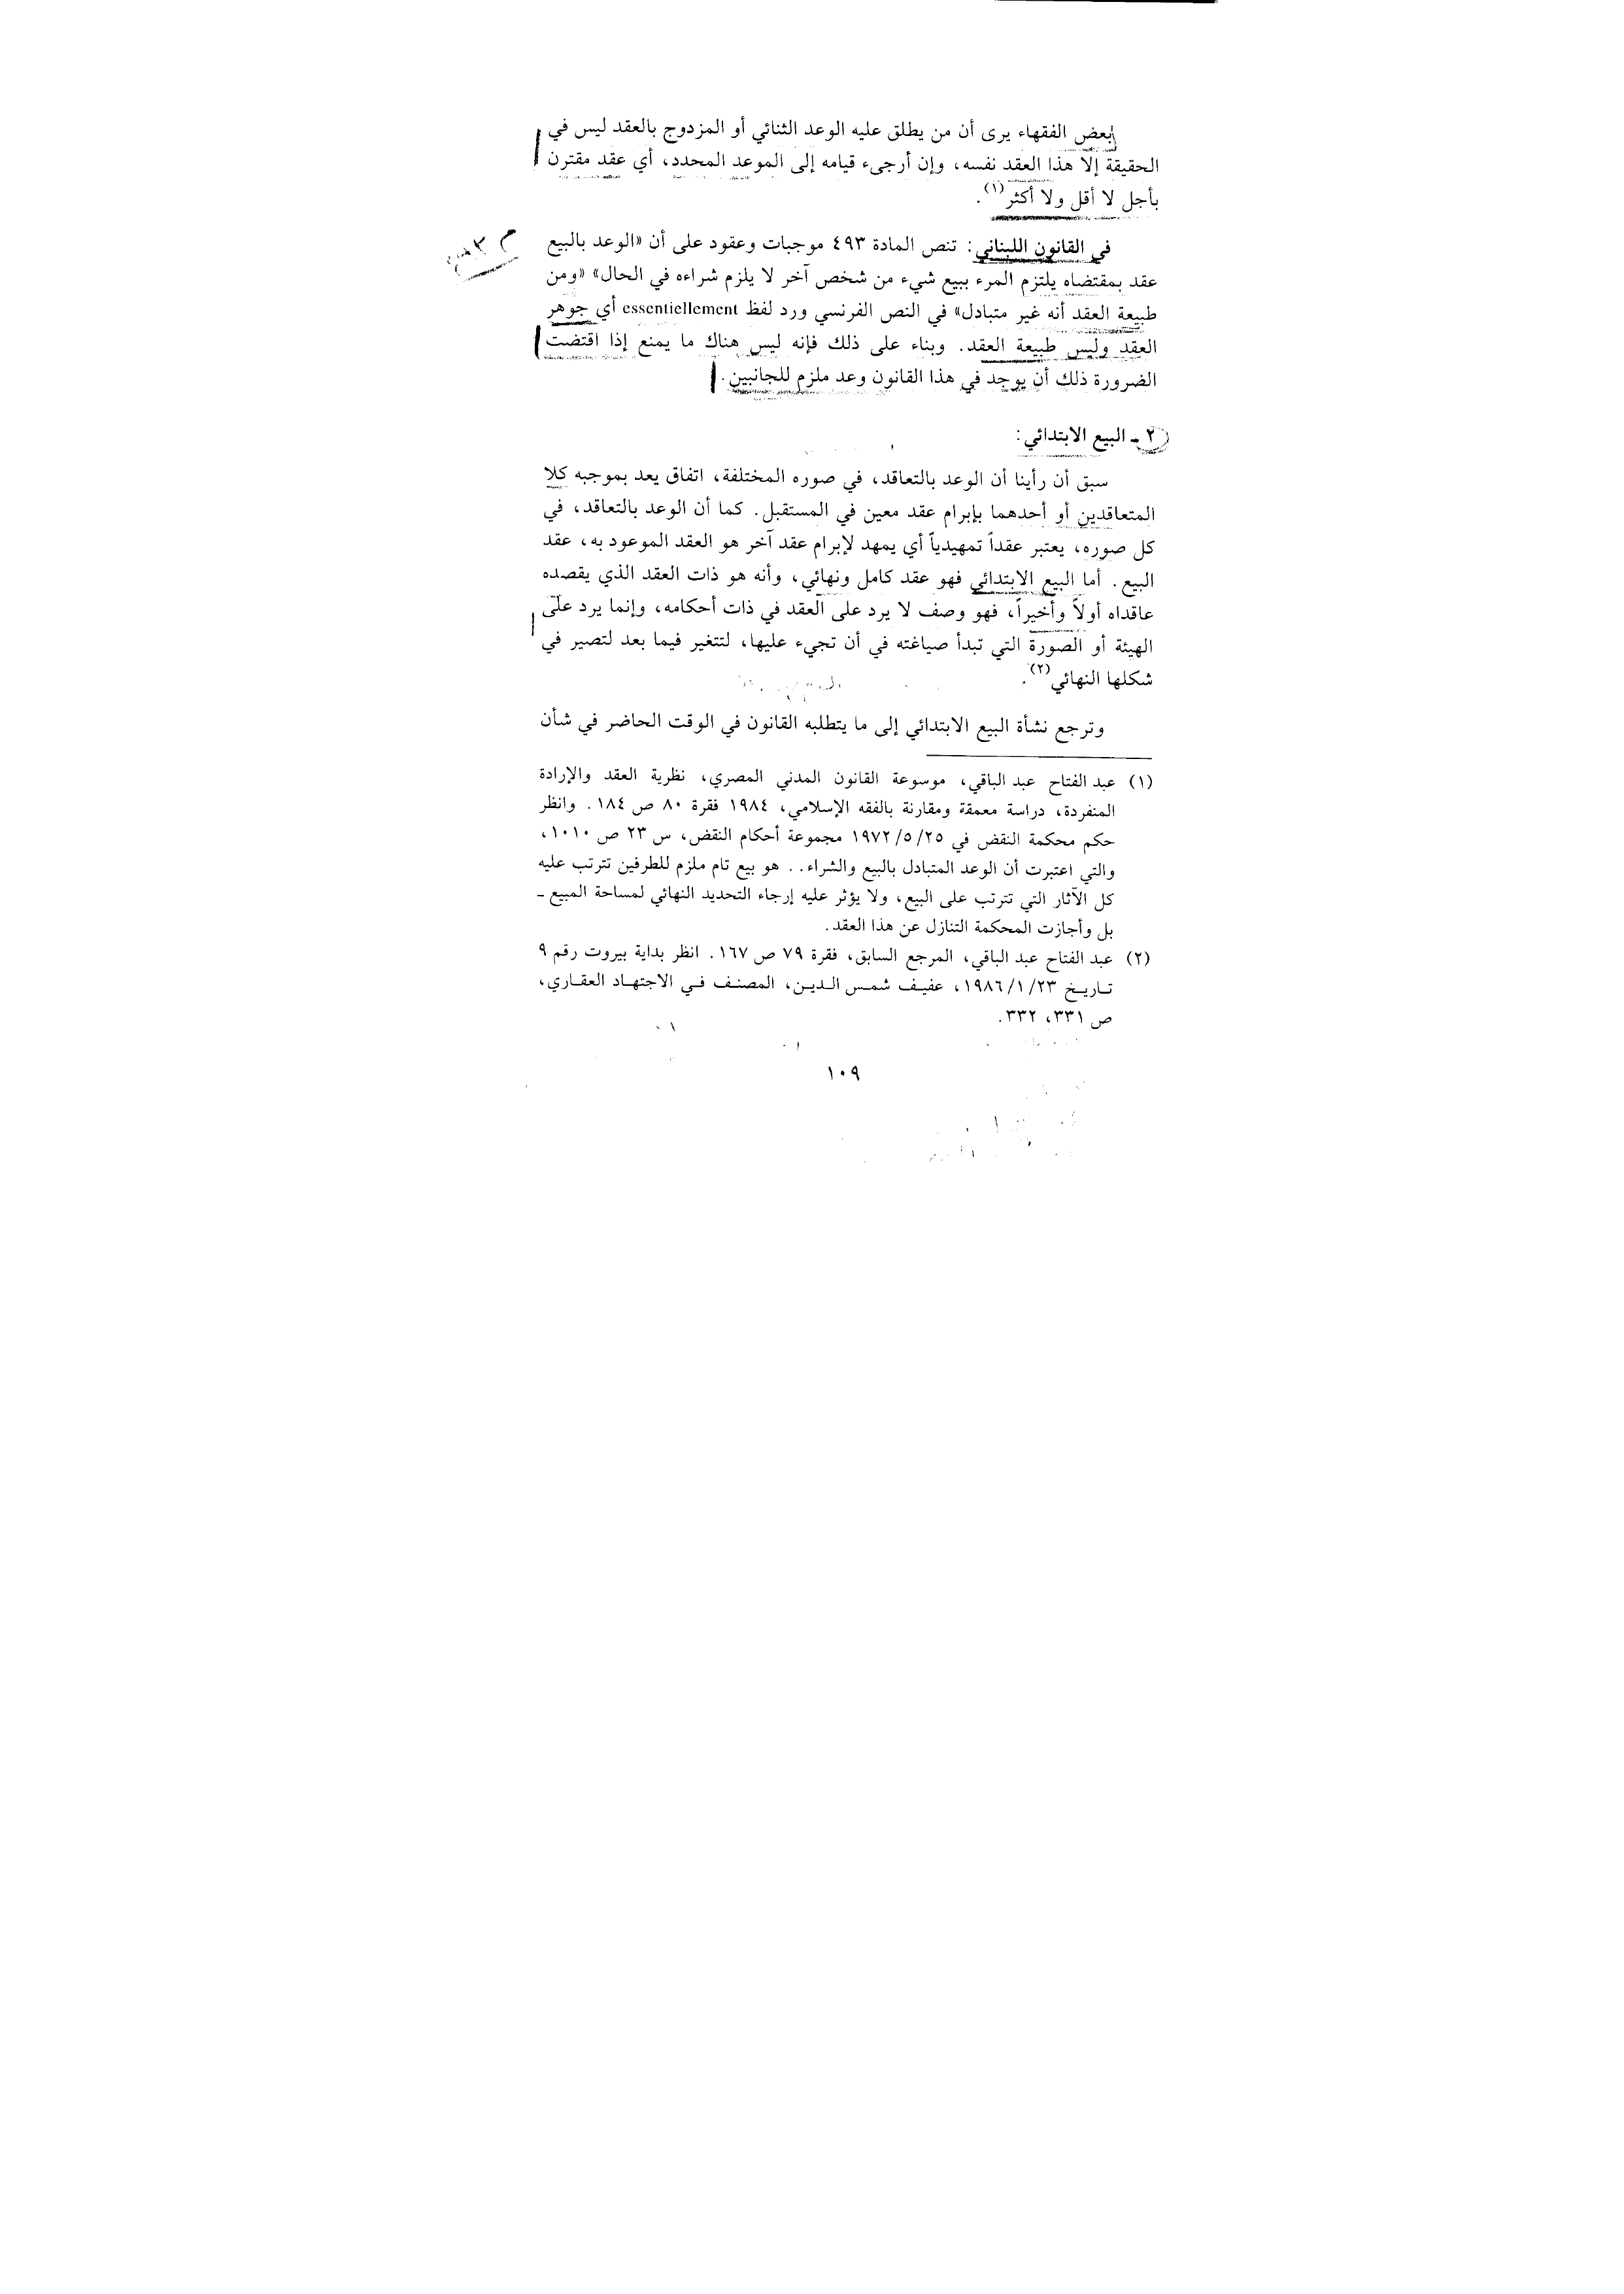 بعض الفقهاء يرى أن من يطلق عليه الوعد الثنائي أو المزدوج بالعقد ليس في
الحقيقة إلا هذا العقد نفسه، وإن أرجىء قيامه إلى الموعد المحدد، أي عقد مقترن
بأجل لا أقل ولا أكثر(١).
في القانون اللبناني: تنص المادة ٤٩٣ موجبات وعقود على أن «الوعد بالبيع
عقد بمقتضاه يلتزم المرء ببيع شيء من شخص آخر لا يلزم شراءه في الحال» «ومن
طبيعة العقد أنه غير متبادل» في النص الفرنسي ورد لفظ essentiellement أي جوهر
العقد وليس طبيعة العقد. وبناء على ذلك فإنه ليس هناك ما يمنع إذا اقتضت
الضرورة ذلك أن يوجد في هذا القانون وعد ملزم للجانبين.
٢ - البيع الابتدائي:
سبق أن رأينا أن الوعد بالتعاقد، في صوره المختلفة، اتفاق يعد بموجبه كلا
المتعاقدين أو أحدهما بإبرام عقد معين في المستقبل. كما أن الوعد بالتعاقد، في
كل صوره، يعتبر عقداً تمهيدياً أي يمهد لإبرام عقد آخر هو العقد الموعود به، عقد
البيع. أما البيع الابتدائي فهو عقد كامل ونهائي، وأنه هو ذات العقد الذي يقصده
عاقداه أولاً وأخيراً، فهو وصف لا يرد على العقد في ذات أحكامه، وإنما يرد على
الهيئة أو الصورة التي تبدأ صياغته في أن تجيء عليها، لتتغير فيما بعد لتصير في
شكلها النهائي(٢).
وترجع نشأة البيع الابتدائي إلى ما يتطلبه القانون في الوقت الحاضر في شأن
(١) عبد الفتاح عبد الباقي، موسوعة القانون المدني المصري، نظرية العقد والإرادة
المنفردة، دراسة معمقة ومقارنة بالفقه الإسلامي، ١٩٨٤ فقرة ٨٠ ص ١٨٤. وانظر
حكم محكمة النقض في ٢٥/٥/١٩٧٢ مجموعة أحكام النقض، س ٢٣ ص ١٠١٠،
والتي اعتبرت أن الوعد المتبادل بالبيع والشراء.. هو بيع تام ملزم للطرفين تترتب عليه
كل الآثار التي تترتب على البيع، ولا يؤثر عليه إرجاء التحديد النهائي لمساحة المبيع ـ
بل وأجازت المحكمة التنازل عن هذا العقد.
(٢) عبد الفتاح عبد الباقي، المرجع السابق، فقرة ٧٩ ص ١٦٧. انظر بداية بيروت رقم ٩
تاريخ ٢٣/١/١٩٨٦، عفيف شمس الدين، المصنف في الاجتهاد العقاري،
ص ٣٣١، ٣٣٢.
١٠٩